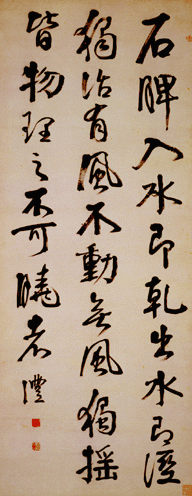 石脾入水即乾出水即溼
獨活有風不動無風獨搖
皆物理之不可曉者澧